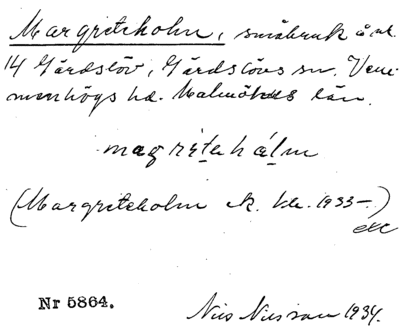 Margreteholm, småbruk å nr.
14 Gärdslöv, Gärdslövs sn. Vem-
menhögs hd. Malmöhus län.
magrétehálm
(Margreteholm ek. kb. 1933-.)
Nr 5864.
Nils Nilsson 1934.